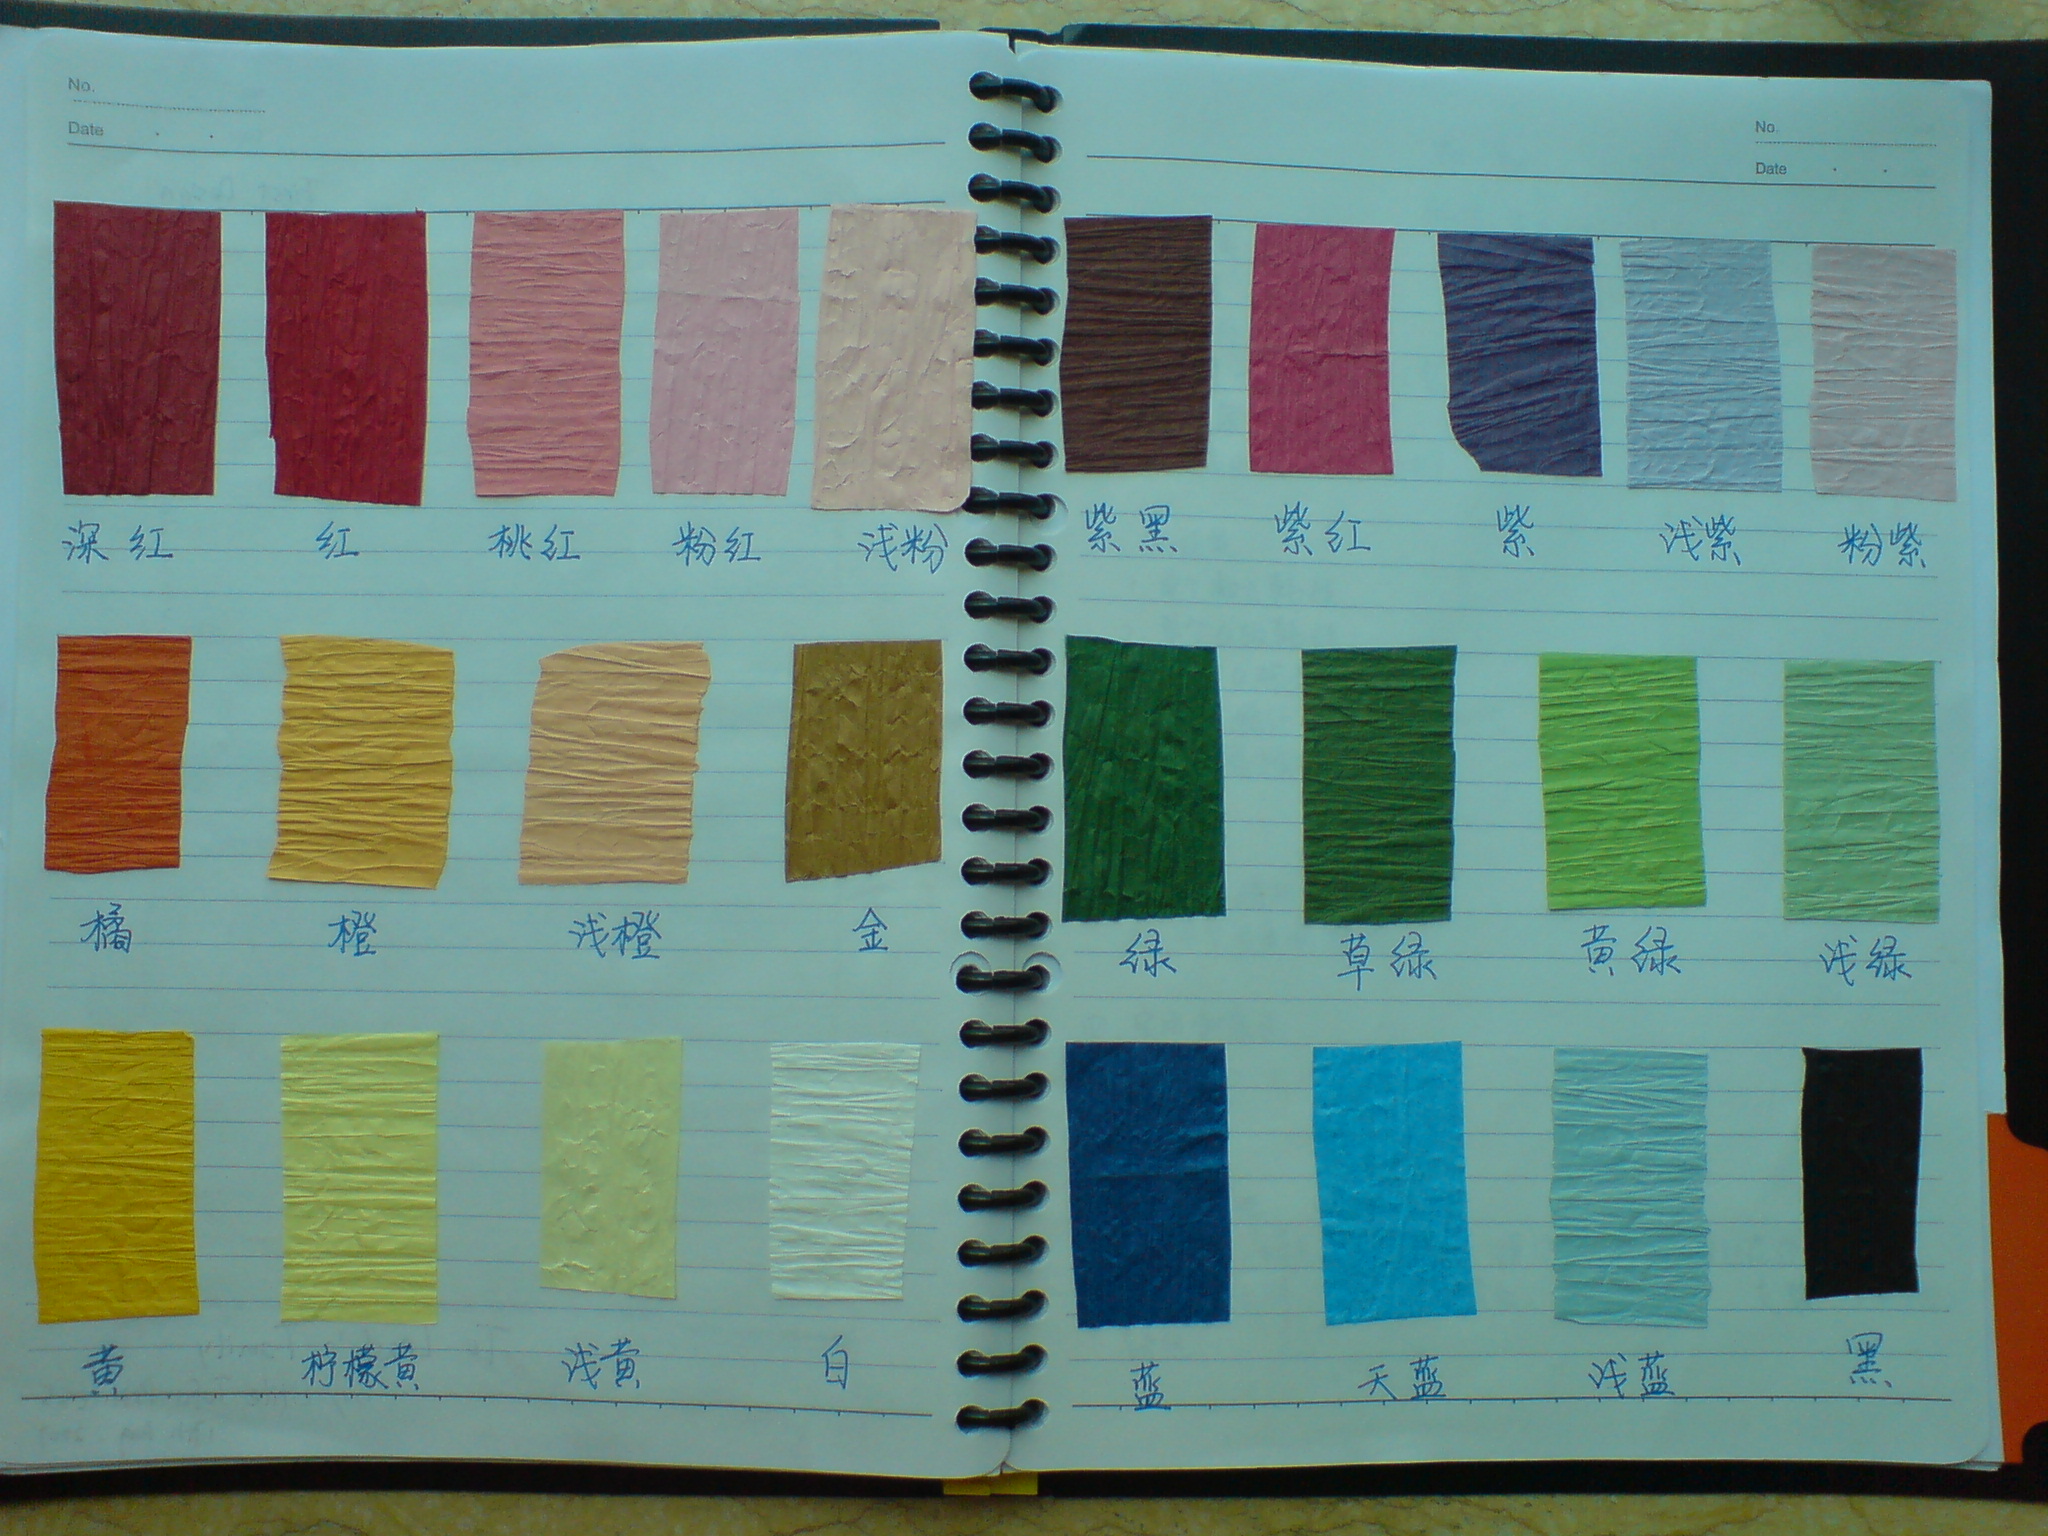 No.
Date
深红 红 桃红 粉红 浅粉
橘 橙 浅橙 金
黄 柠檬黄 浅黄 白
No.
Date
紫黑 紫红 紫 浅紫 粉紫
绿 草绿 黄绿 浅绿
蓝 天蓝 浅蓝 黑